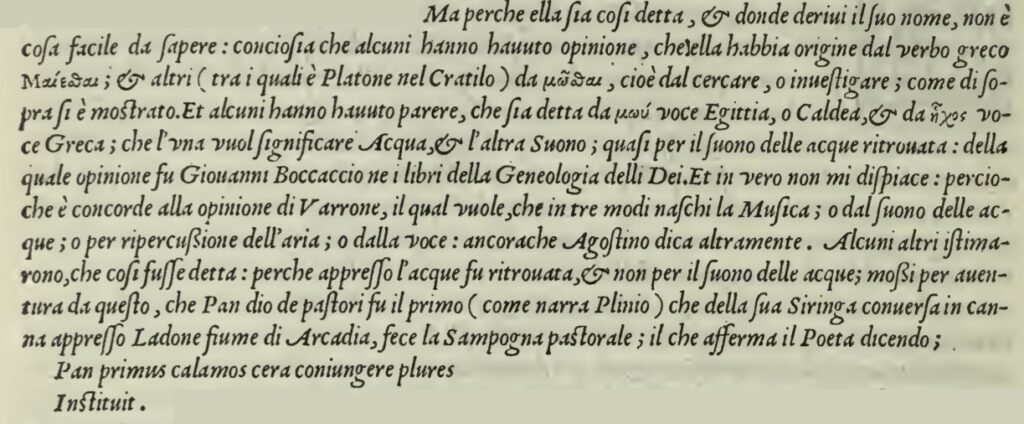 Ma perche ella ſia coſi detta, & donde deriui il ſuo nome, non è
coſa facile da ſapere : concioſia che alcuni hanno hauuto opinione, che ella habbia origine dal verbo greco
Μαίεϑαι ; & altri ( tra i quali è Platone nel Cratilo ) da μῶϑαι, cioè dal cercare, o inueſtigare ; come di ſo-
pra ſi è moſtrato. Et alcuni hanno hauuto parere, che ſia detta da μωύ voce Egittia, o Caldea, & da ἦχος vo-
ce Greca ; che l'vna vuol ſignificare Acqua, & l'altra Suono ; quaſi per il ſuono delle acque ritrouata : della
quale opinione fu Giouanni Boccaccio ne i libri della Geneologia delli Dei. Et in vero non mi diſpiace : percio-
che è concorde alla opinione di Varrone, il qual vuole, che in tre modi naſchi la Muſica ; o dal ſuono delle ac-
que ; o per ripercußione dell'aria ; o dalla voce : ancorache Agoſtino dica altramente . Alcuni altri iſtima-
rono, che coſi fuſſe detta : perche appreſſo l'acque fu ritrouata, & non per il ſuono delle acque; moßi per auen-
tura da queſto , che Pan dio de paſtori fu il primo ( come narra Plinio ) che della ſua Siringa conuerſa in can-
na appreſſo Ladone fiume di Arcadia, fece la Sampogna paſtorale ; il che afferma il Poeta dicendo ;
Pan primus calamos cera coniungere plures
Inſtituit .